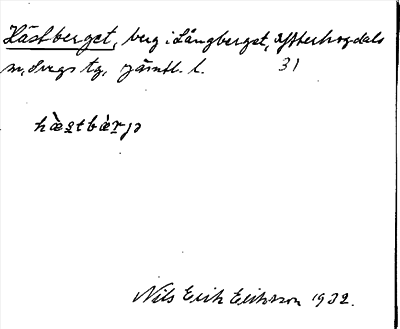 Hästberget, berg i Långberget, Ytterhogdals
sn, Svegs tg, Jämtl. l. 31
hæstbærjə
Nils Erik Eriksson 1932.